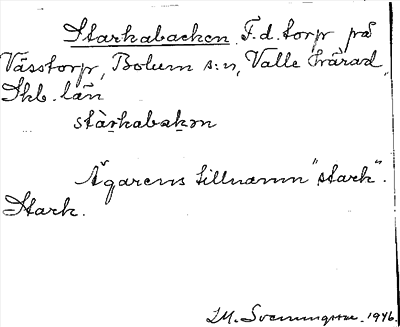 Starkabacken. F.d. torp på
Vässtorp, Bolum s:n, Valle härad,
Skb. län
stàrkabakən
Ägarens tillnamn "stark".
Stark.
I.M. Svenningsson. 1946.